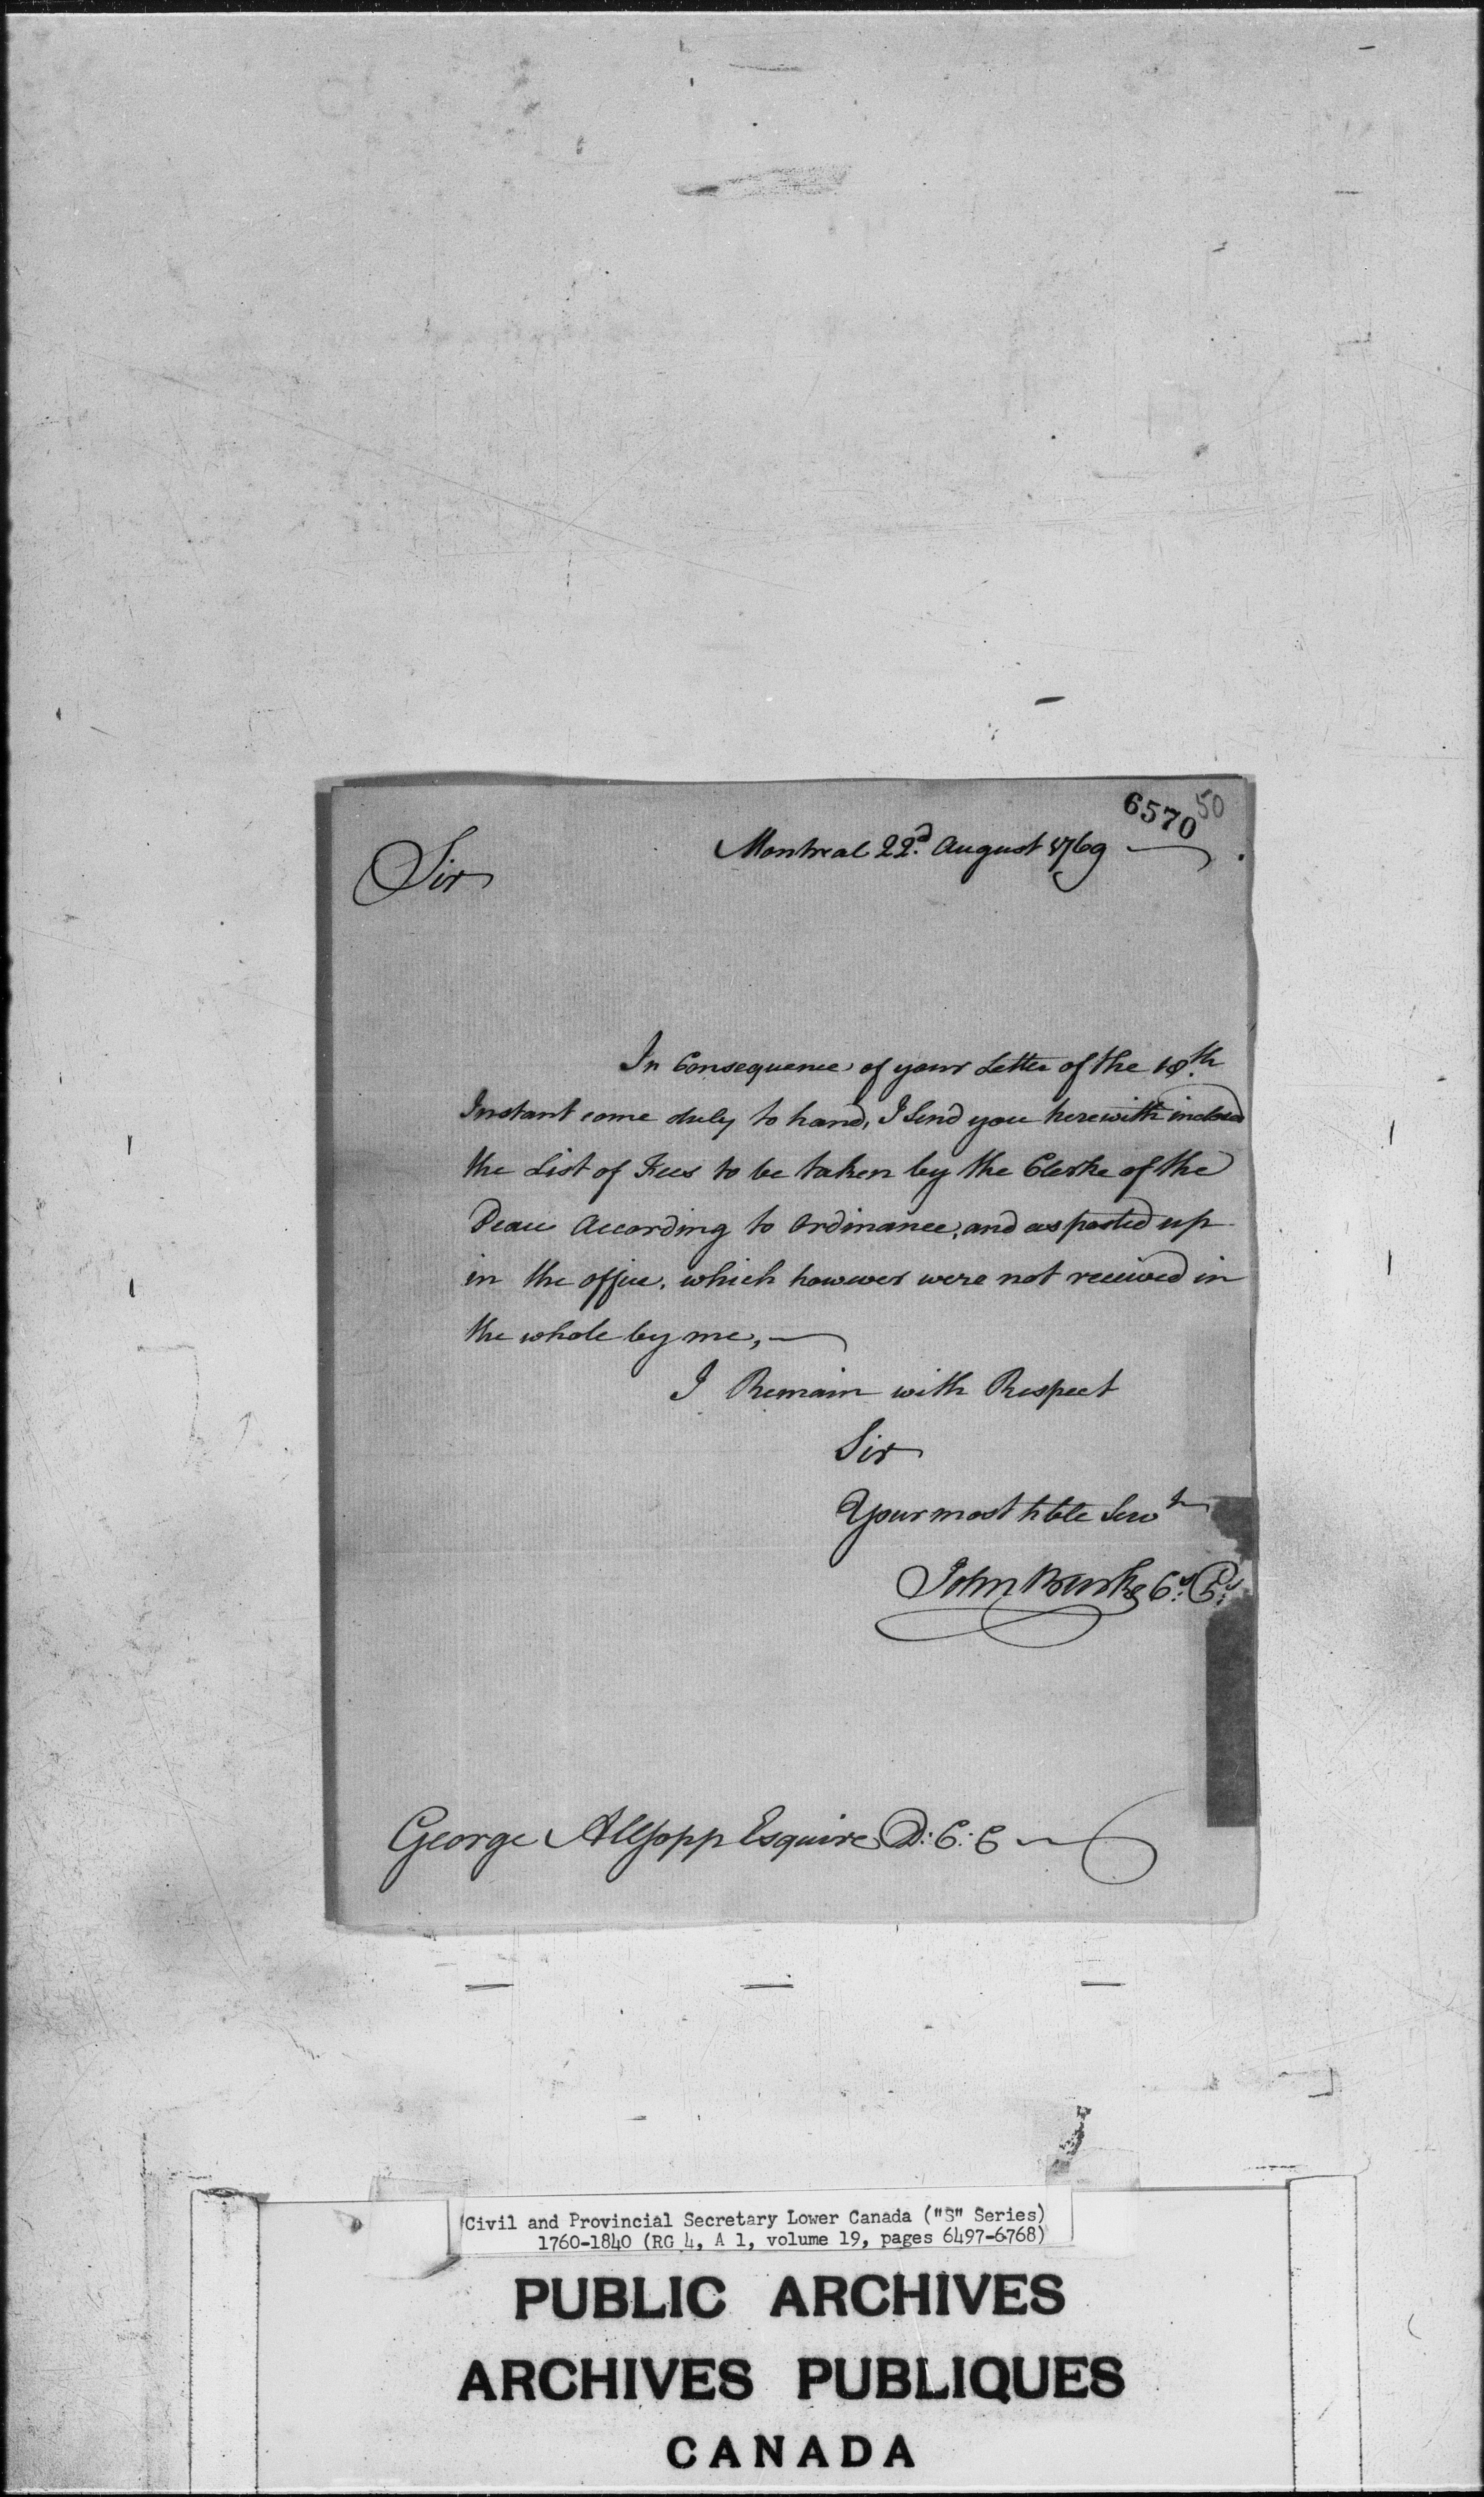 6570 50
Montreal 22d. August 1769
Sir
In Consequence of your Letter of the 18th.
Instant come duly to hand, I Send you herewith inclosed
the List of Fees to be taken by the Clerke of the
Peace According to Ordinance, and as posted up
in the office, which however were not received in
the whole by me, —
I Remain with Respect
Sir
Your most hble Servt
John Burke C: P:
George Allsopp Esquire D: C: C
Civil and Provincial Secretary Lower Canada ("S" Series)
1760-1840 (RG 4, A 1, volume 19, pages 6497-6768)
PUBLIC ARCHIVES
ARCHIVES PUBLIQUES
CANADA